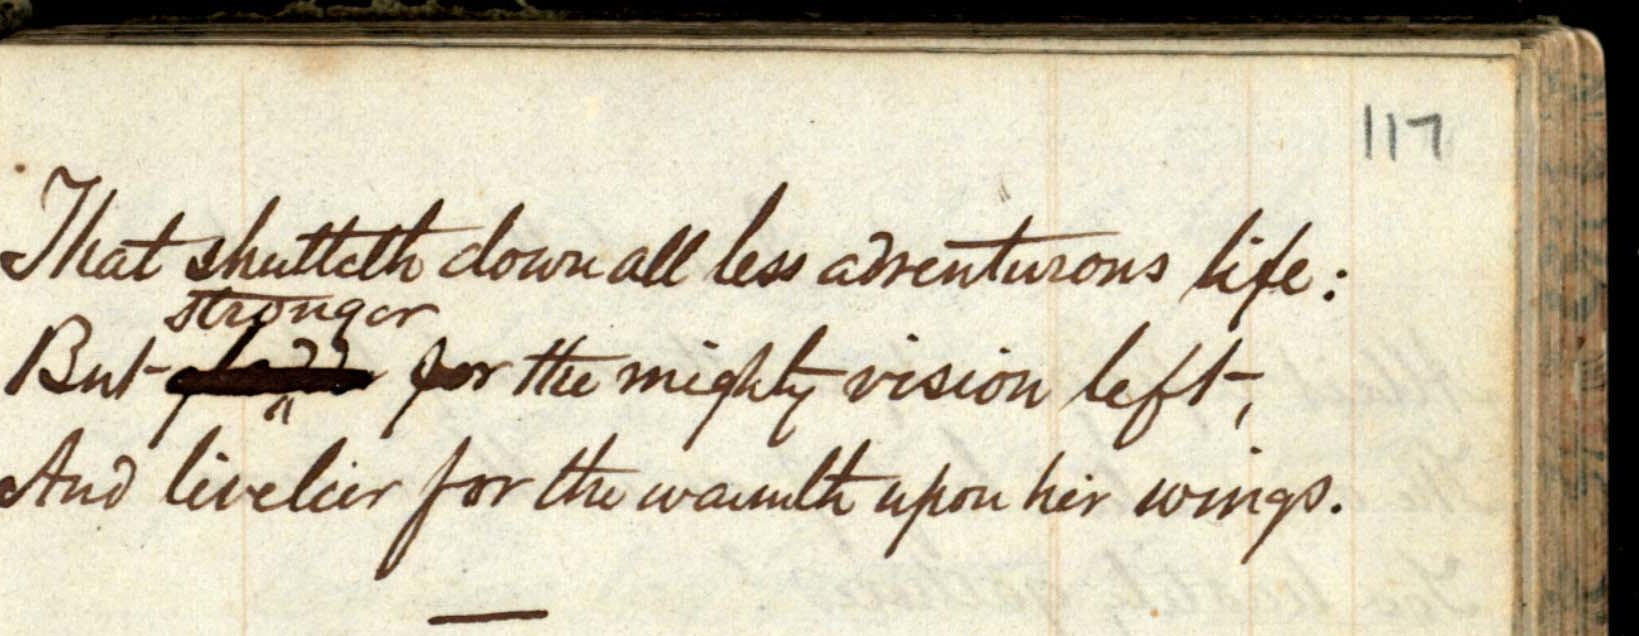 117
That shutteth down all less adventurous life:
stronger
But for the mighty vision left,
And livelier for the warmth upon her wings.